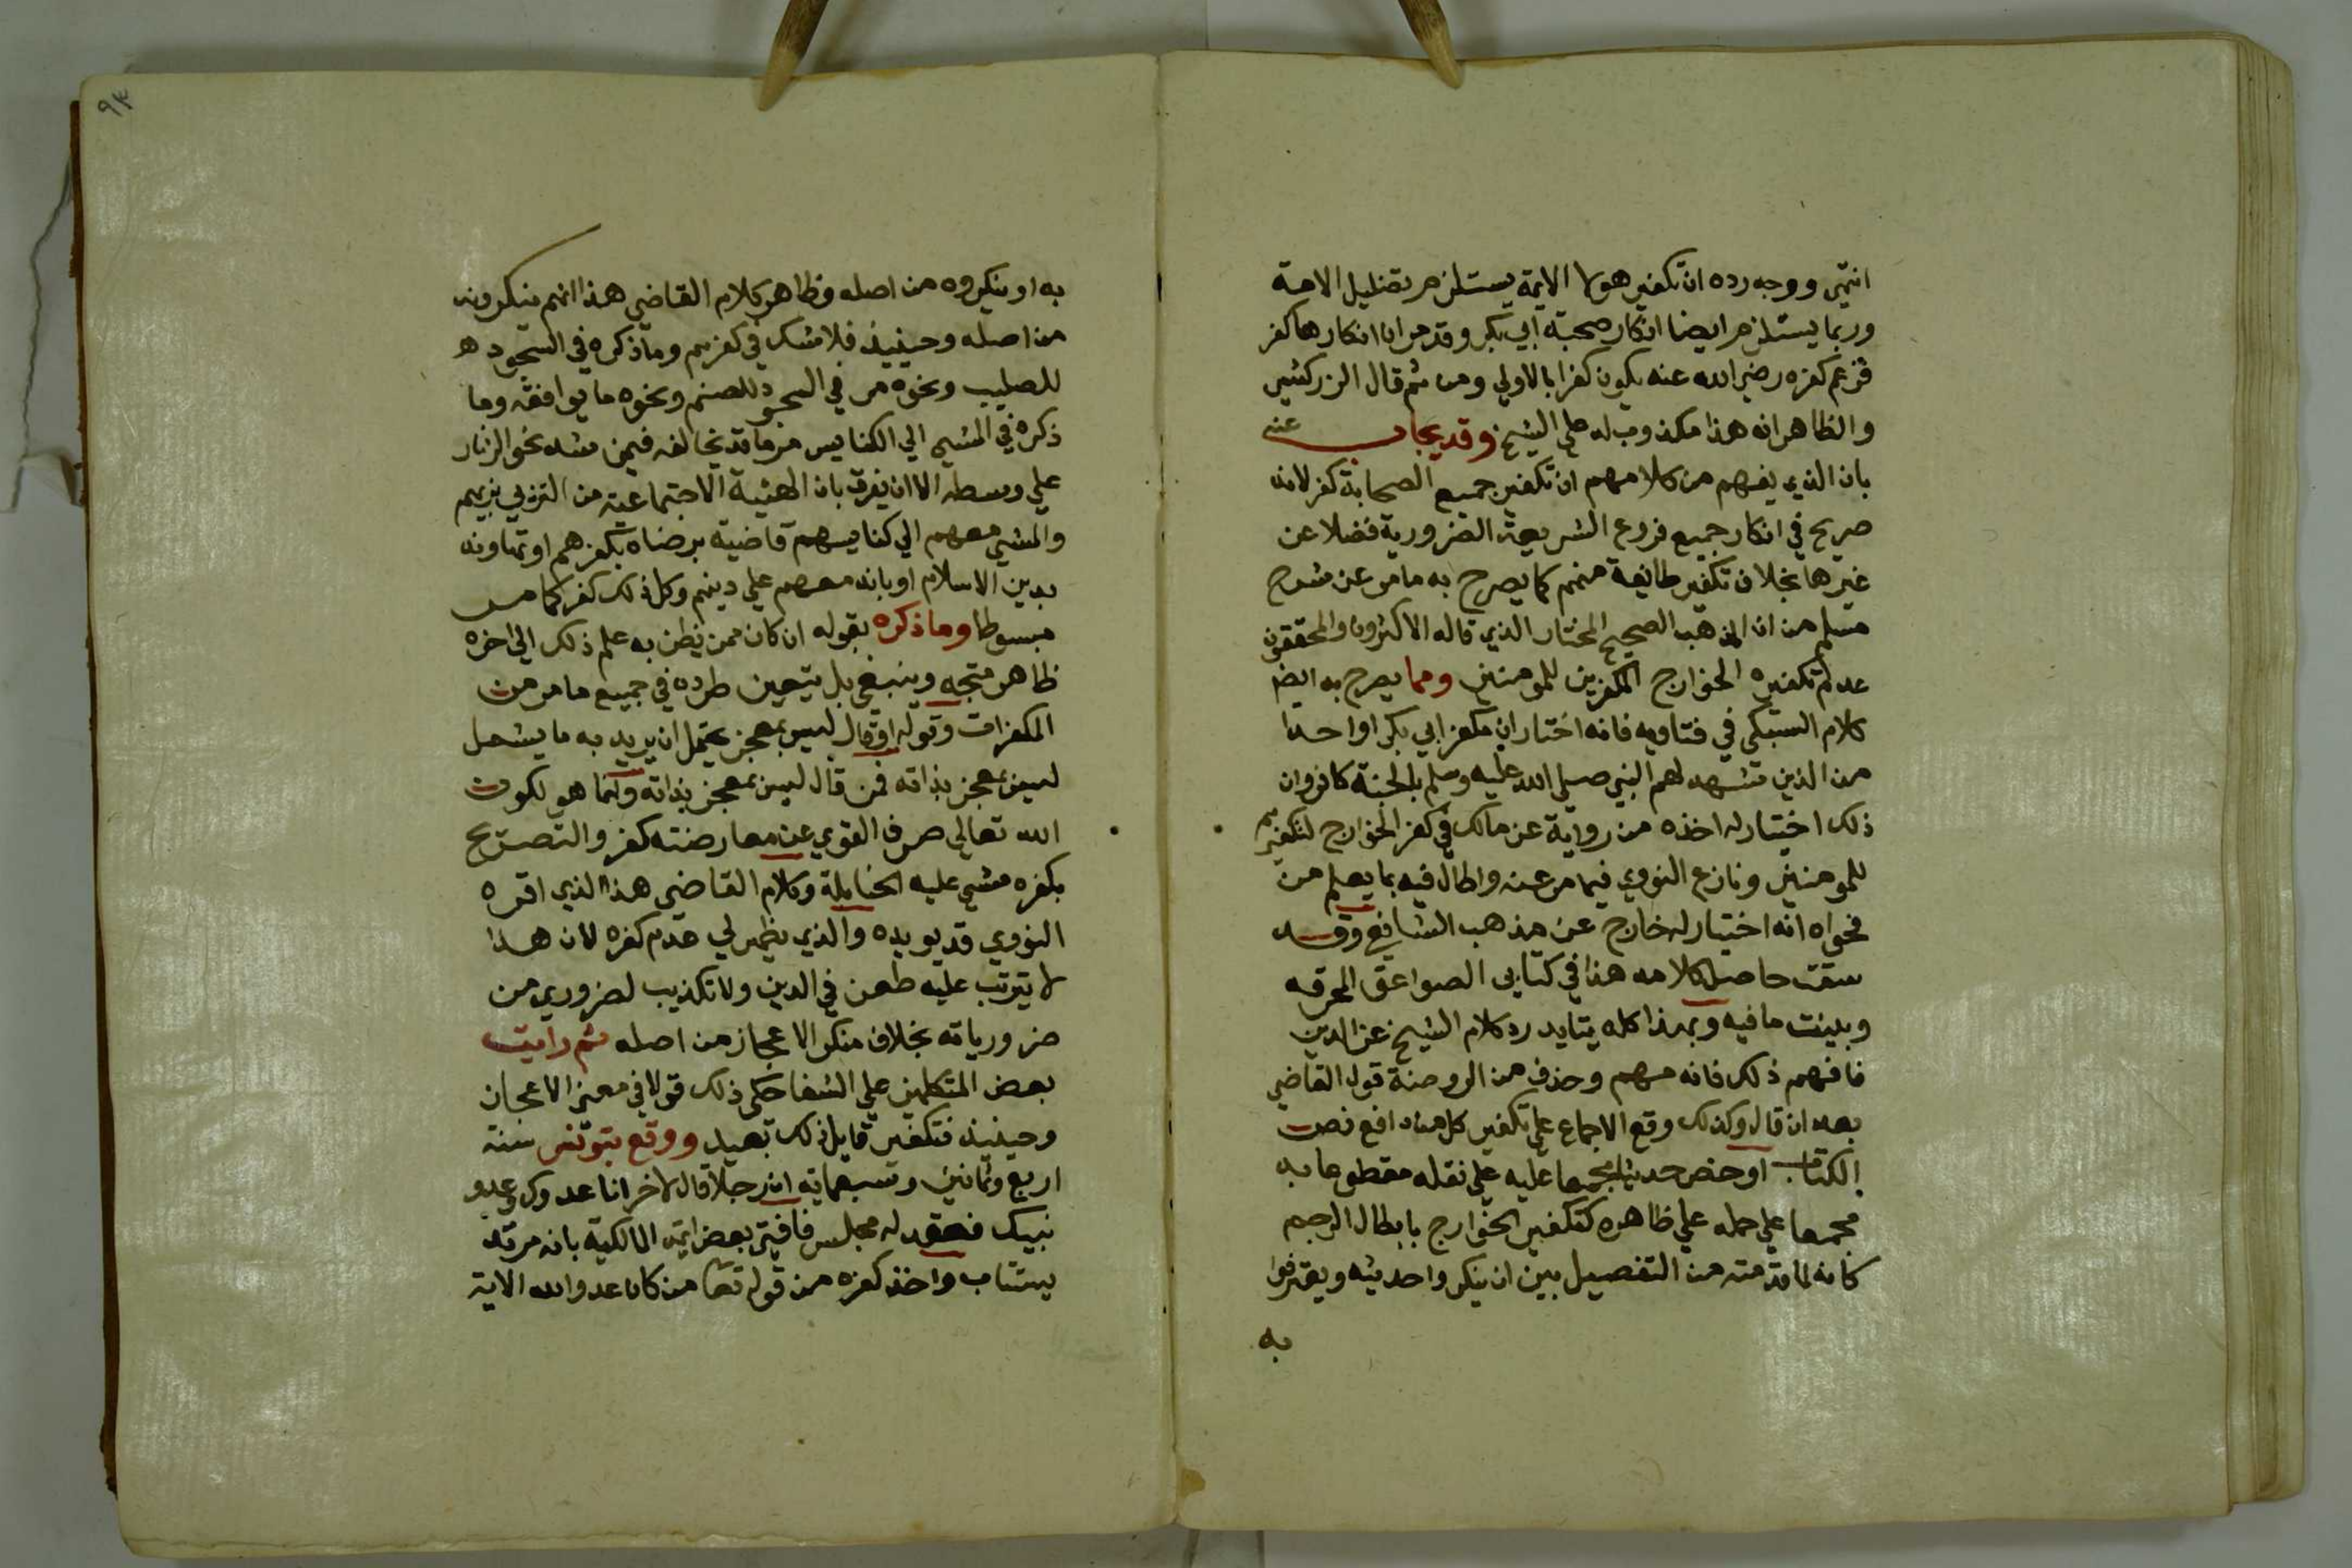 انتهى ووجه رده ان تكفير هولا الايمة يستلزم تضليل الامة
وربما يستلزم ايضا انكار صحبة ابي بكر وقد مر ان انكارها كفر
فزعم كفره رضي الله عنه يكون كفرا بالاولي ومن ثم قال الزركشي
والظاهر انه هذا مكذوب له علي الشيخ وقد يجاب عنه
بان الذي يفهم من كلامهم ان تكفير جميع الصحابة كفر لانه
صريح في انكار جميع فروع الشريعة الضرورية فضلا عن
غيرها بخلاف تكفير طائفة منهم كما يصرح به ما مر عن شرح
مسلم من ان المذهب الصحيح المختار الذي قاله الاكثرون والمحققون
عدم تكفيره الخوارج المكفرين للمومنين ومما يصرح به ايضا
كلام السبكي في فتاويه فانه اختار ان مكفر ابي بكر او احدا
من الذين شهد لهم النبي صلي الله عليه وسلم بالجنة كافر وان
ذلك اختيار له اخذه من رواية عن مالك في كفر الخوارج لتكفيرهم
للمومنين ونازع النووي فيما مر عنه واطال فيه بما يعلم من
فحواه انه اختيار له خارج عن مذهب الشافعي وقد
سقت حاصل كلامه هذا في كتابي الصواعق المحرقه
وبينت ما فيه وبهذا كله يتايد رد كلام الشيخ عز الدين
فافهم ذلك فانه مهم وحذف من الروضة قول القاضي
بعد ان قال وكذلك وقع الاجماع علي تكفير كل من دافع نص
الكتاب او خص حديثا مجمعا عليه علي نقله مقطوعا به
مجمعا علي حمله علي ظاهره كتكفير الخوارج بابطال الرجم
كانه لما قدمته من التفصيل بين ان ينكروا حديثه ويعترفوا
به
٩٣
به او ينكروه من اصله وظاهر كلام القاضي هذا انهم ينكرونه
من اصله وحينيذ فلا شك في كفرهم وما ذكره في السجود
للصليب ونحوه مر في السجود للصنم ونحوه ما يوافقه وما
ذكره في المشي الي الكنايس مر ما قد يخالفه فيمن شد نحو الزنار
علي وسطه الا ان يفرق بان الهيئة الاجتماعية من التزيي بزيهم
والمشي معهم الي كنايسهم قاضية برضاه بكفرهم او تهاونه
بدين الاسلام او بانه معهم علي دينهم وكل ذلك كفر كما مر
مبسوطا وما ذكره بقوله ان كان ممن يظن به علم ذلك الي اخره
ظاهر متجه وينبغي بل يتعين طرده في جميع ما مر من
المكفرات وقوله او قال ليس بمعجز يحتمل ان يريد به ما يشمل
ليس بمعجز بذاته فمن قال ليس بمعجز بذاته وانما هو لكون
الله تعالي صرف القوي عن معارضته كفر والتصريح
بكفره مشي عليه الحنابلة وكلام القاضي هذا الذي اقره
النووي قد يويده والذي يظهر لي عدم كفره لان هذا
لا يترتب عليه طعن في الدين ولا تكذيب لضروري من
ضرورياته بخلاف منكر الاعجاز من اصله ثم رايت
بعض المتكلمين علي الشفا حكي ذلك قولا في معني الاعجاز
وحينيذ فتكفير قايل ذلك بعيد ووقع بتونس سنة
اربع وثمانين وسبعماية ان رجلا قال لاخر انا عدوك وعدو
نبيك فعقد له مجلس فافتي بعض ايمة المالكية بانه مرتد
يستتاب واخذ كفره من قوله تعا من كان عدوا لله الاية